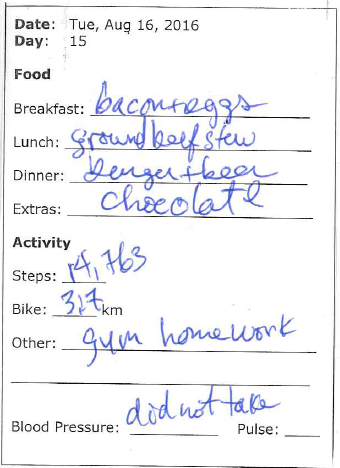 Date: Tue, Aug 16, 2016
Day: 15
Food
Breakfast: bacon+eggs
Lunch: ground beef stew
Dinner: burger+beer
Extras: chocolate
Activity
Steps: 14,763
Bike: 3,7 km
Other: gym homework
did not take
Blood Pressure: Pulse: